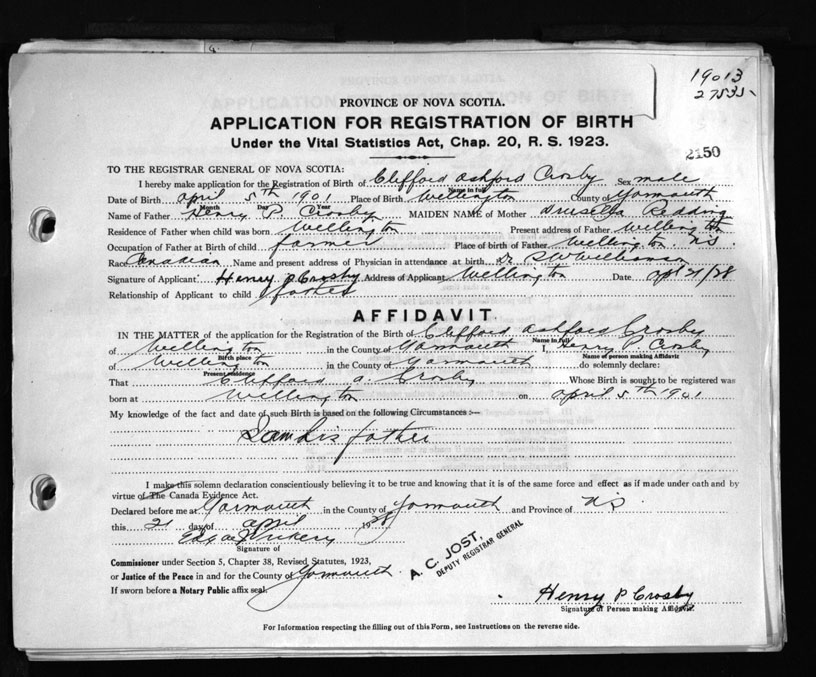 19013
27535
PROVINCE OF NOVA SCOTIA.
APPLICATION FOR REGISTRATION OF BIRTH
Under the Vital Statistics Act, Chap. 20, R. S. 1923.
2150
TO THE REGISTRAR GENERAL OF NOVA SCOTIA:
I hereby make application for the Registration of Birth of Clifford Ashford Crosby Sex male
Name in full
Date of Birth April 5th 1901 Place of Birth Wellington County of Yarmouth
Month Day Year
Name of Father Henry P. Crosby MAIDEN NAME of Mother Drusilla Redding
Residence of Father when child was born Wellington Present address of Father Wellington
Occupation of Father at Birth of child farmer Place of Birth of Father Wellington NS.
Race Canadian Name and present address of Physician in attendance at birth Dr
Signature of Applicant Henry P Crosby Address of Applicant Wellington Date Apl 21/28
Relationship of Applicant to child father
AFFIDAVIT
IN THE MATTER of the application for the Registration of the Birth of Clifford Ashford Crosby
Name in full
of Wellington in the County of Yarmouth I, Henry P Crosby
Birth place Name of person making Affidavit
of Wellington in the County of Yarmouth do solemnly declare:
Present residence
That Clifford A. Crosby Whose Birth is sought to be registered was
born at Wellington on April 5th 1901
My knowledge of the fact and date of such Birth is based on the following Circumstances :—
I am his father
I make this solemn declaration conscientiously believing it to be true and knowing that it is of the same force and effect as if made under oath and by
virtue of The Canada Evidence Act.
Declared before me at Yarmouth in the County of Yarmouth and Province of NS
this 21 day of April 1928
Signature of
Commissioner under Section 5, Chapter 38, Revised Statutes, 1923,
or Justice of the Peace in and for the County of Yarmouth
If sworn before a Notary Public affix seal.
A. C. JOST,
DEPUTY REGISTRAR GENERAL
Henry P Crosby
Signature of Person making Affidavit.
For Information respecting the filling out of this Form, see Instructions on the reverse side.